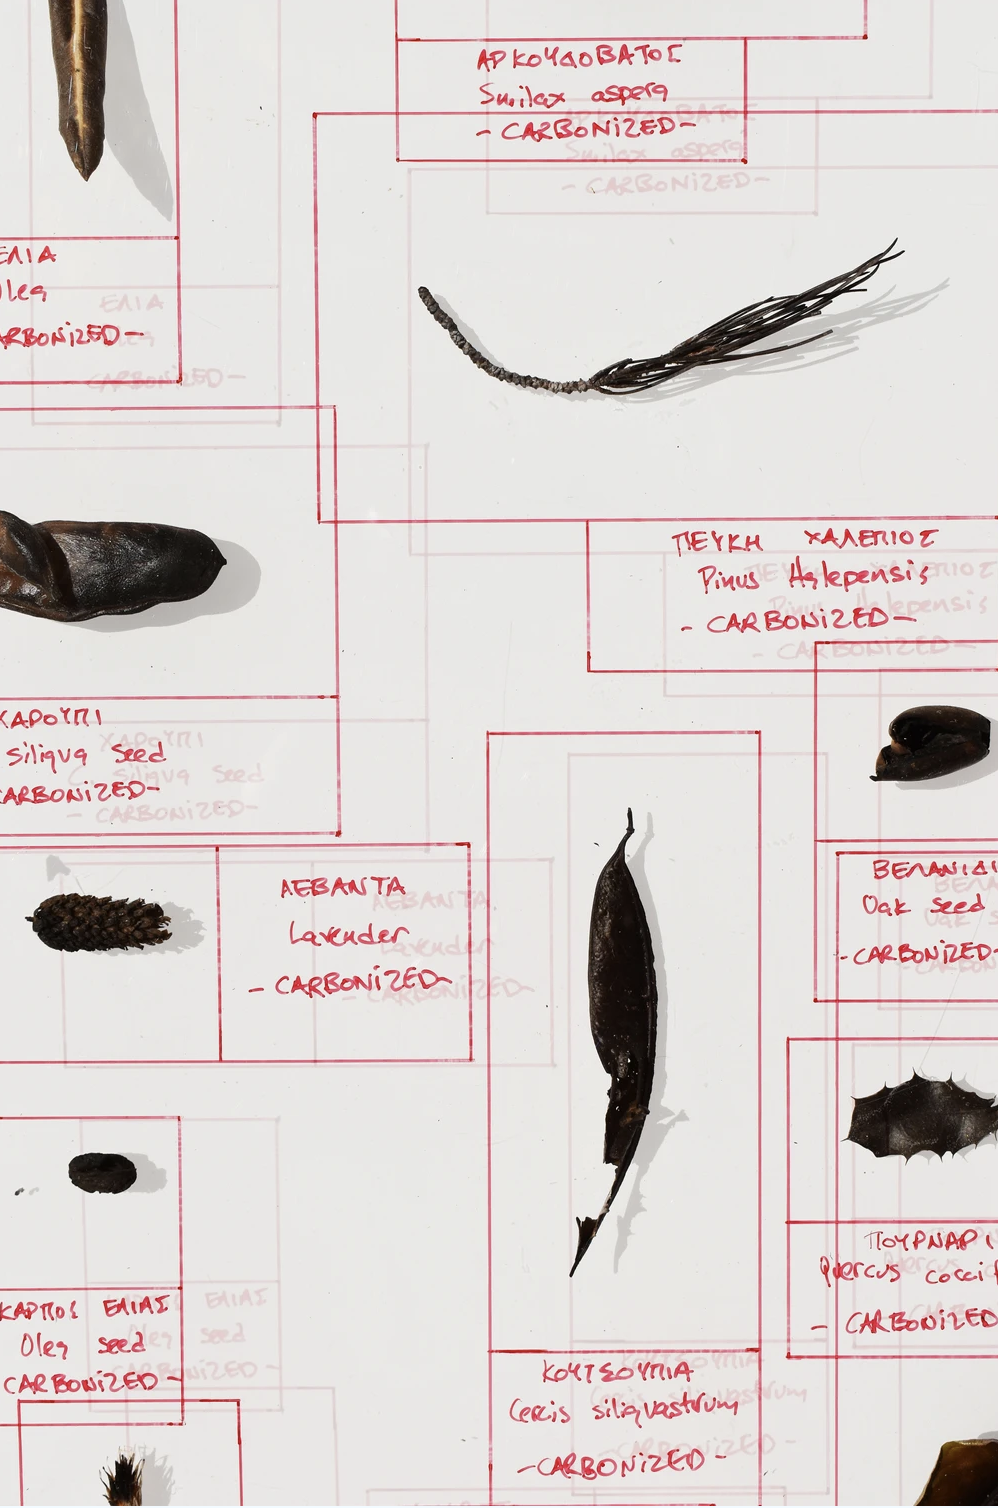 ΑΡΚΟΥΔΟΒΑΤΟΣ
Smilax aspera
- CARBONiZED -
ΕΛΙΑ
Olea
CARBONiZED -
ΠΕΥΚΗ ΧΑΛΕΠΙΟΣ
Pinus Halepensis
- CARBONiZED -
ΧΑΡΟΥΠΙ
siliqua Seed
CARBONiZED -
ΛΕΒΑΝΤΑ
Lavender
- CARBONiZED -
ΒΕΛΑΝΙΔΙ
Oak seed
- CARBONiZED -
ΚΑΡΠΟΣ ΕΛΙΑΣ
Olea seed
CARBONiZED -
ΠΟΥΡΝΑΡΙ
Quercus
- CARBONiZED
ΚΟΥΤΣΟΥΠΙΑ
Cercis siliquastrum
- CARBONiZED -